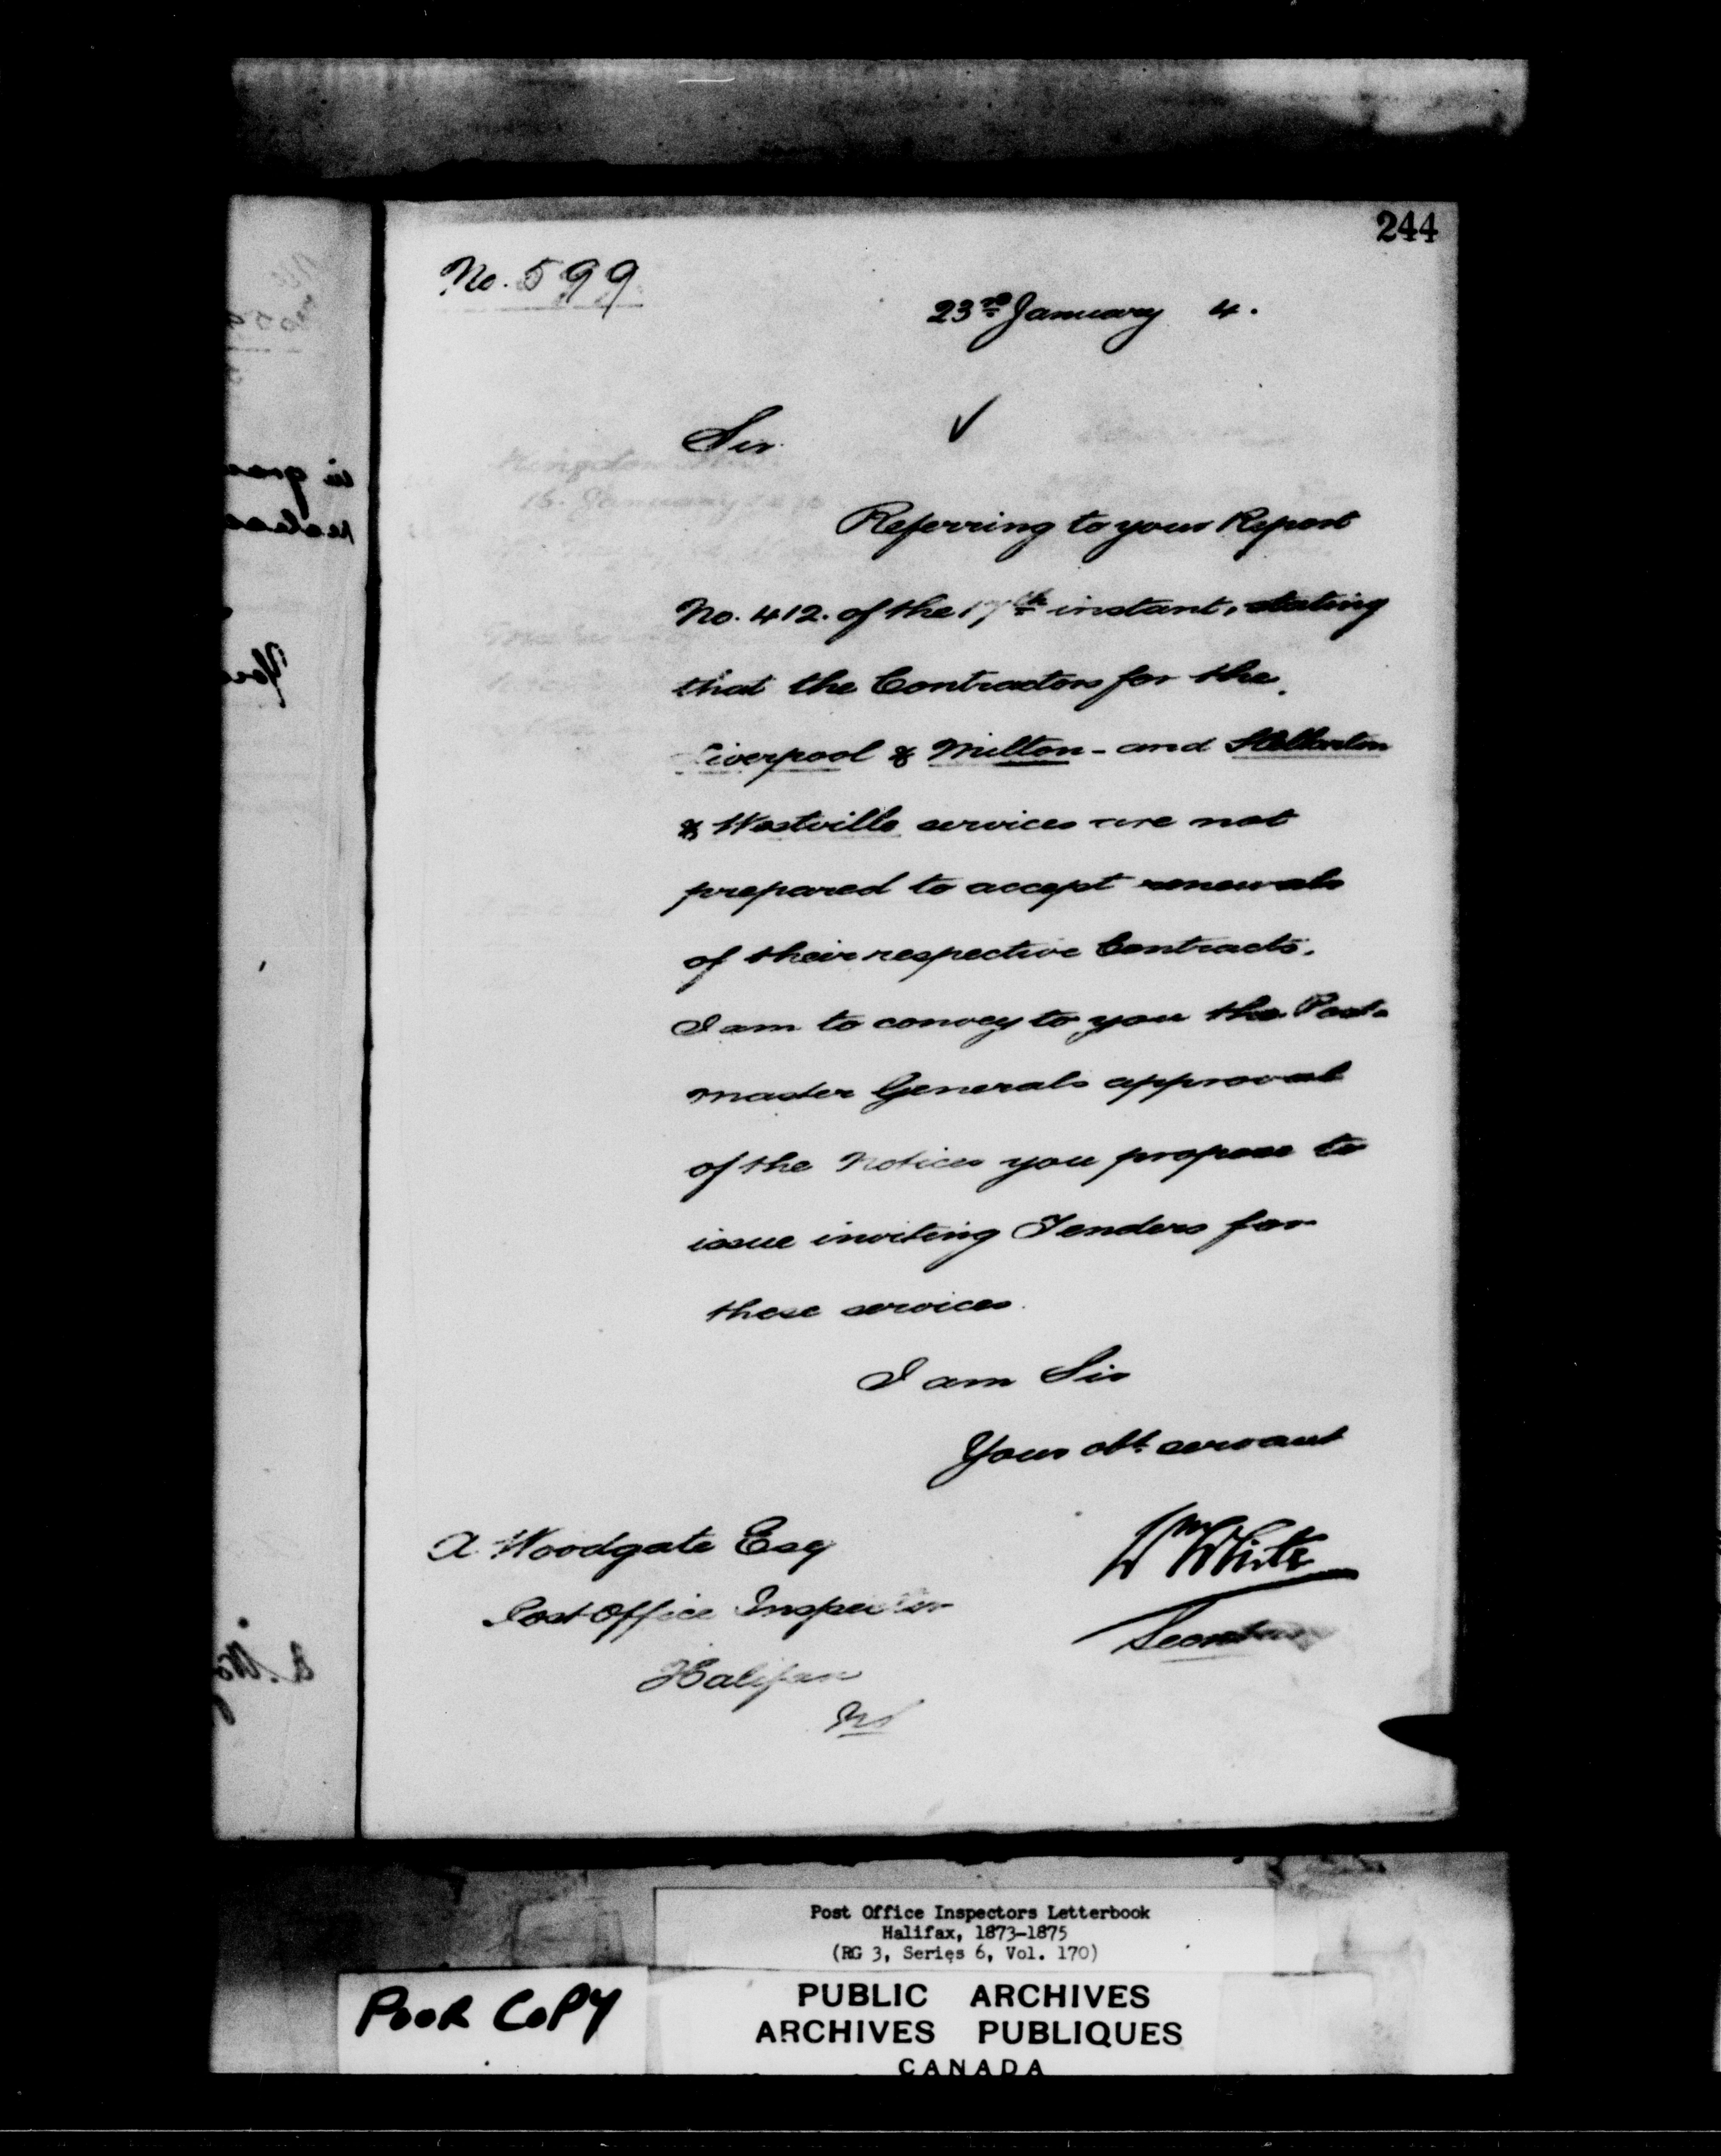 244
No. 599
23rd January 4.
Sir
Referring to your Report
No. 412. of the 17th instant, stating
that the Contractors for the
Liverpool & Milton - and Stellarton
& Westville services are not
prepared to accept renewals
of their respective Contracts.
I am to convey to you the Post-
master Generals approval
of the Notices you propose to
issue inviting Tenders for
these services.
I am Sir
Your obt. servant
Wm White
Secretary
A. Woodgate Esq
Post Office Inspector
Halifax
NS
Post Office Inspectors Letterbook
Halifax, 1873-1875
(RG 3, Series 6, Vol. 170)
POOR COPY
PUBLIC ARCHIVES
ARCHIVES PUBLIQUES
CANADA